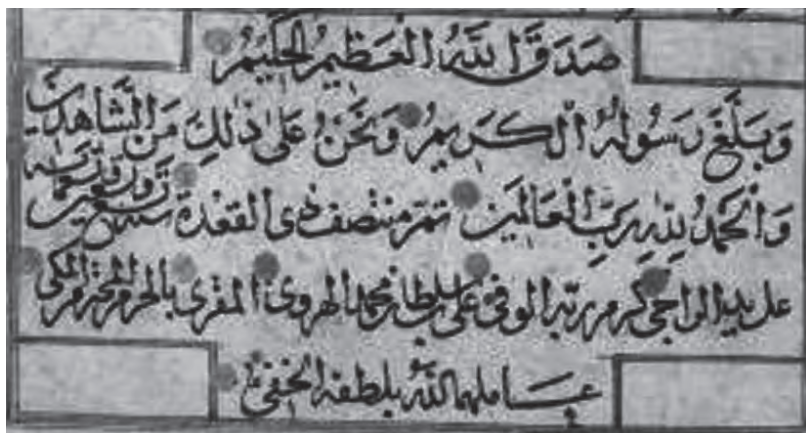 صَدَقَ اللهُ الْعَظِيمُ الْحَكِيمُ
وَبَلَّغَ رَسُولُهُ الْكَرِيمُ وَنَحْنُ عَلَى ذٰلِكَ مِنَ الشَّاهِدِينَ
وَالْحَمْدُ لِلّٰهِ رَبِّ الْعَالَمِينَ تم منتصف ذى القعدة سنة
على يد الراجى كرم ربه الوفى على بن سلطان محمد الهروى المقرى بالحرم المحترم المكى
عاملهما الله بلطفه الخفى